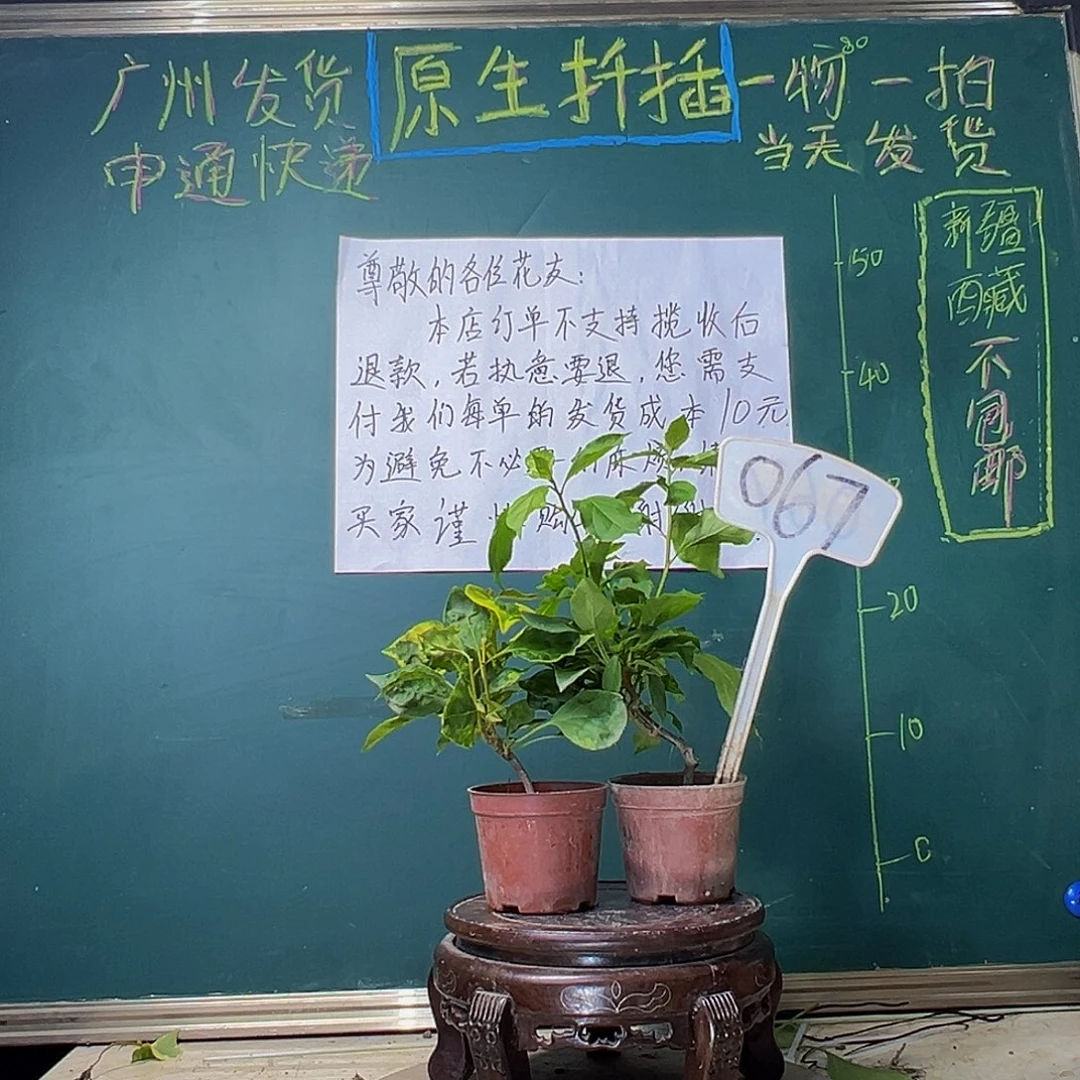 广州发货
申通快递
原生扦插
一物一拍
当天发货
新疆
西藏
不
包
邮
50
40
20
10
0
尊敬的各位花友:
本店订单不支持揽收后
退款,若执意要退,您需支
付我们每单的发货成本10元
为避免不必
买家谨
067